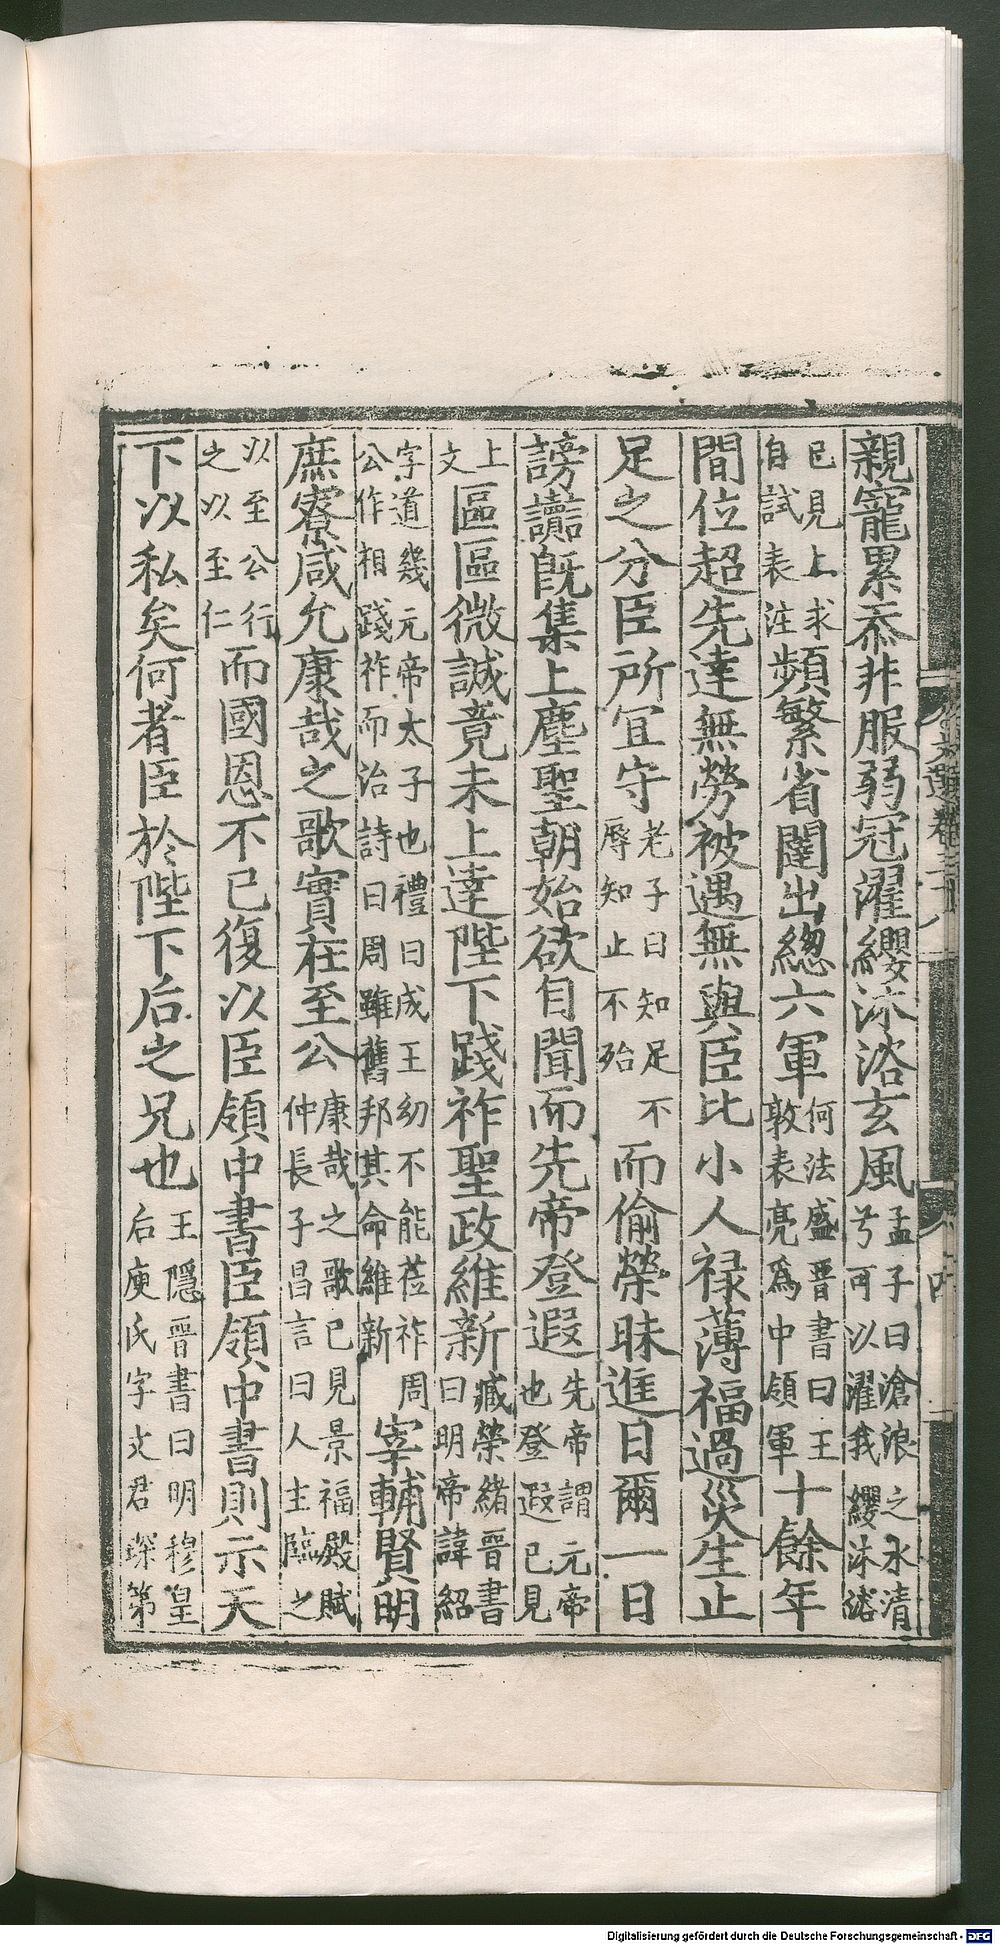 親寵累忝非服弱冠濯纓沐浴玄風孟子曰滄浪之水清兮可以濯我纓沐浴
已見上求自試表注頻繁省闥出緫六軍何法盛晋書曰王敦表亮爲中領軍十餘年
間位超先達無勞被遇無與臣比小人禄薄福過災生止
足之分臣所宜守老子曰知足不辱知止不殆而偷榮昧進日爾一日
謗讟旣集上塵聖朝始欲自聞而先帝登遐先帝謂元帝也登遐已見
上文區區微誠竟未上達陛下踐祚聖政維新臧榮緒晋書曰明帝諱紹
字道幾元帝太子也禮曰成王幼不能莅祚周公作相踐祚而治詩曰周雖舊邦其命維新宰輔賢明
庶寮咸允康哉之歌實在至公康哉之歌已見景福殿賦仲長子昌言曰人主臨之
以至公行之以至仁而國恩不已復以臣領中書臣領中書則示天
下以私矣何者臣於陛下后之兄也王隱晋書曰明穆皇后庾氏字文君琛第
文選卷三十八
十四
Digitalisierung gefördert durch die Deutsche Forschungsgemeinschaft - DFG